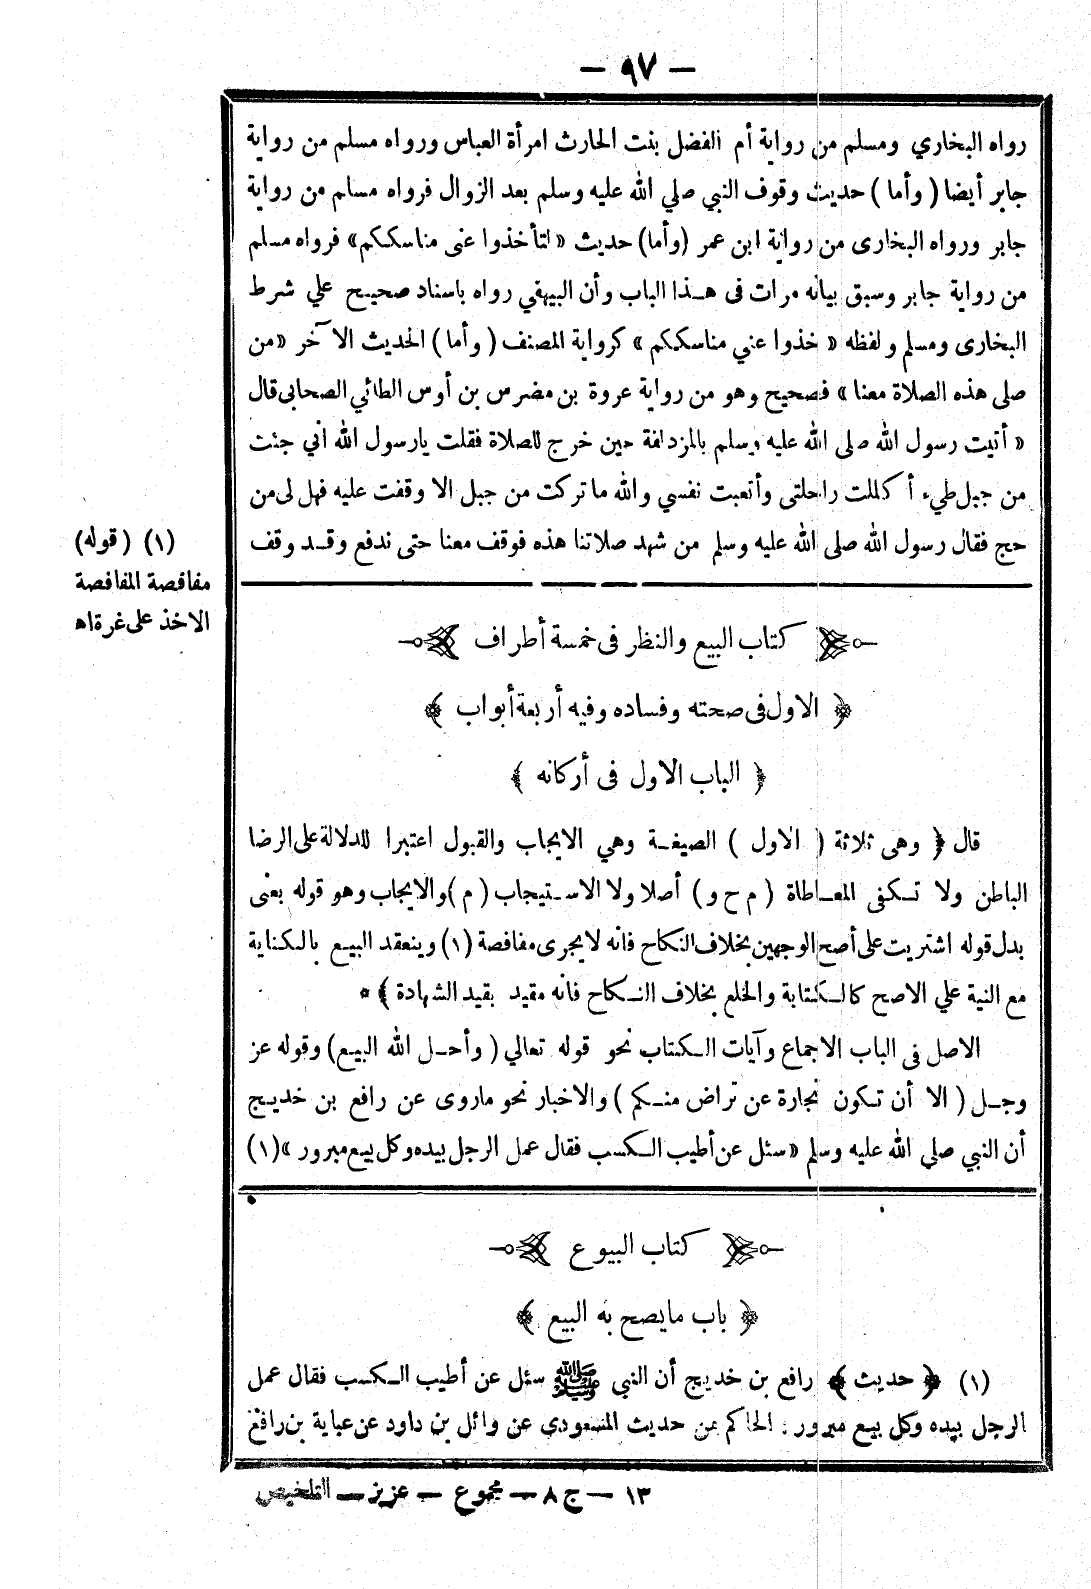 — ٩٧ —
رواه البخاري ومسلم من رواية أم الفضل بنت الحارث امرأة العباس ورواه مسلم من رواية
جابر أيضا ( وأما ) حديث وقوف النبي صلي الله عليه وسلم بعد الزوال فرواه مسلم من رواية
جابر ورواه البخارى من رواية ابن عمر (وأما) حديث « لتأخذوا عنى مناسككم» فرواه مسلم
من رواية جابر وسبق بيانه مرات فى هـذا الباب وأن البيهقي رواه باسناد صحيح علي شرط
البخارى ومسلم ولفظه « خذوا عني مناسككم » كرواية المصنف ( وأما ) الحديث الآخر «من
صلى هذه الصلاة معنا » فصحيح وهو من رواية عروة بن مضرس بن أوس الطائي الصحابى قال
« أتيت رسول الله صلى الله عليه وسلم بالمزدلفة حين خرج للصلاة فقلت يارسول الله أني جئت
من جبل طيء أكللت راحلتى وأتعبت نفسي والله ما تركت من جبل الا وقفت عليه فهل لى من
حج فقال رسول الله صلى الله عليه وسلم من شهد صلاتنا هذه فوقف معنا حتى ندفع وقـد وقف
(١) (قوله)
مفاقصة المفاقصة
الاخذ على غرة اه
كتاب البيع والنظر فى خمسة أطراف
﴿ الاول فى صحته وفساده وفيه أربعة أبواب ﴾
﴿ الباب الاول فى أركانه ﴾
قال ﴿ وهى ثلاثة ( الاول ) الصيغـة وهي الايجاب والقبول اعتبرا للدلالة على الرضا
الباطن ولا تـكفى المعـاطاة ( م ح و ) أصلا ولا الاسـتيجاب ( م ) والايجاب وهو قوله بعنى
بدل قوله اشتريت على أصح الوجهين بخلاف النكاح فانه لا يجرى مفاقصة (١) وينعقد البيع بالكناية
مع النية علي الاصح كالـكتابة والخلع بخلاف النـكاح فانه مقيد بقيد الشهادة ﴾ *
الاصل فى الباب الاجماع وآيات الـكتاب نحو قوله تعالي ( وأحـل الله البيع) وقوله عز
وجـل ( الا أن تـكون تجارة عن تراض منـكم ) والاخبار نحو ماروى عن رافع بن خديج
أن النبي صلي الله عليه وسلم «سئل عن أطيب الـكسب فقال عمل الرجل بيده وكل بيع مبرور » (١)
كتاب البيوع
﴿ باب ما يصح به البيع ﴾
(١) ﴿ حديث ﴾ رافع بن خديج أن النبي ﷺ سئل عن أطيب الـكسب فقال عمل
الرجل بيده وكل بيع مبرور : الحاكم من حديث المسعودى عن وائل بن داود عن عباية بن رافع
١٣ — ج ٨ — مجموع — عزيز — التلخيص